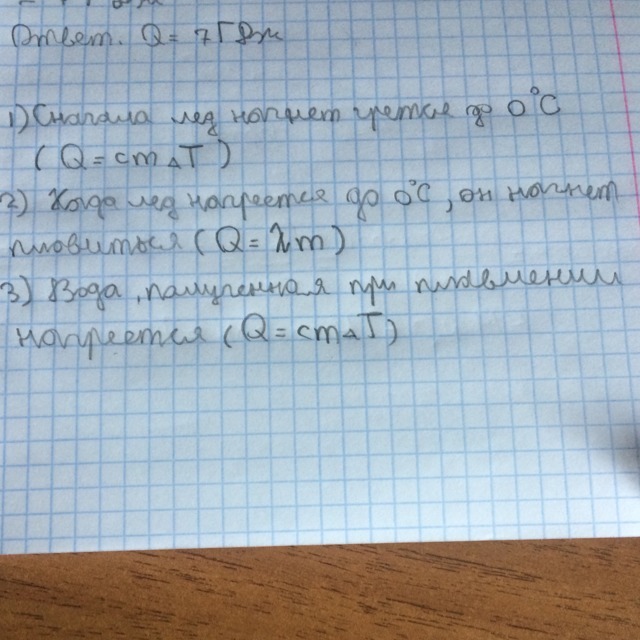 Ответ. Q = 7ГДж
1) Сначала лед начнет греться до 0°C
(Q = cm△T)
2) Когда лед нагреется до 0°C, он начнет
плавиться (Q = λm)
3) Вода, полученная при плавлении
нагреется (Q = cm△T)